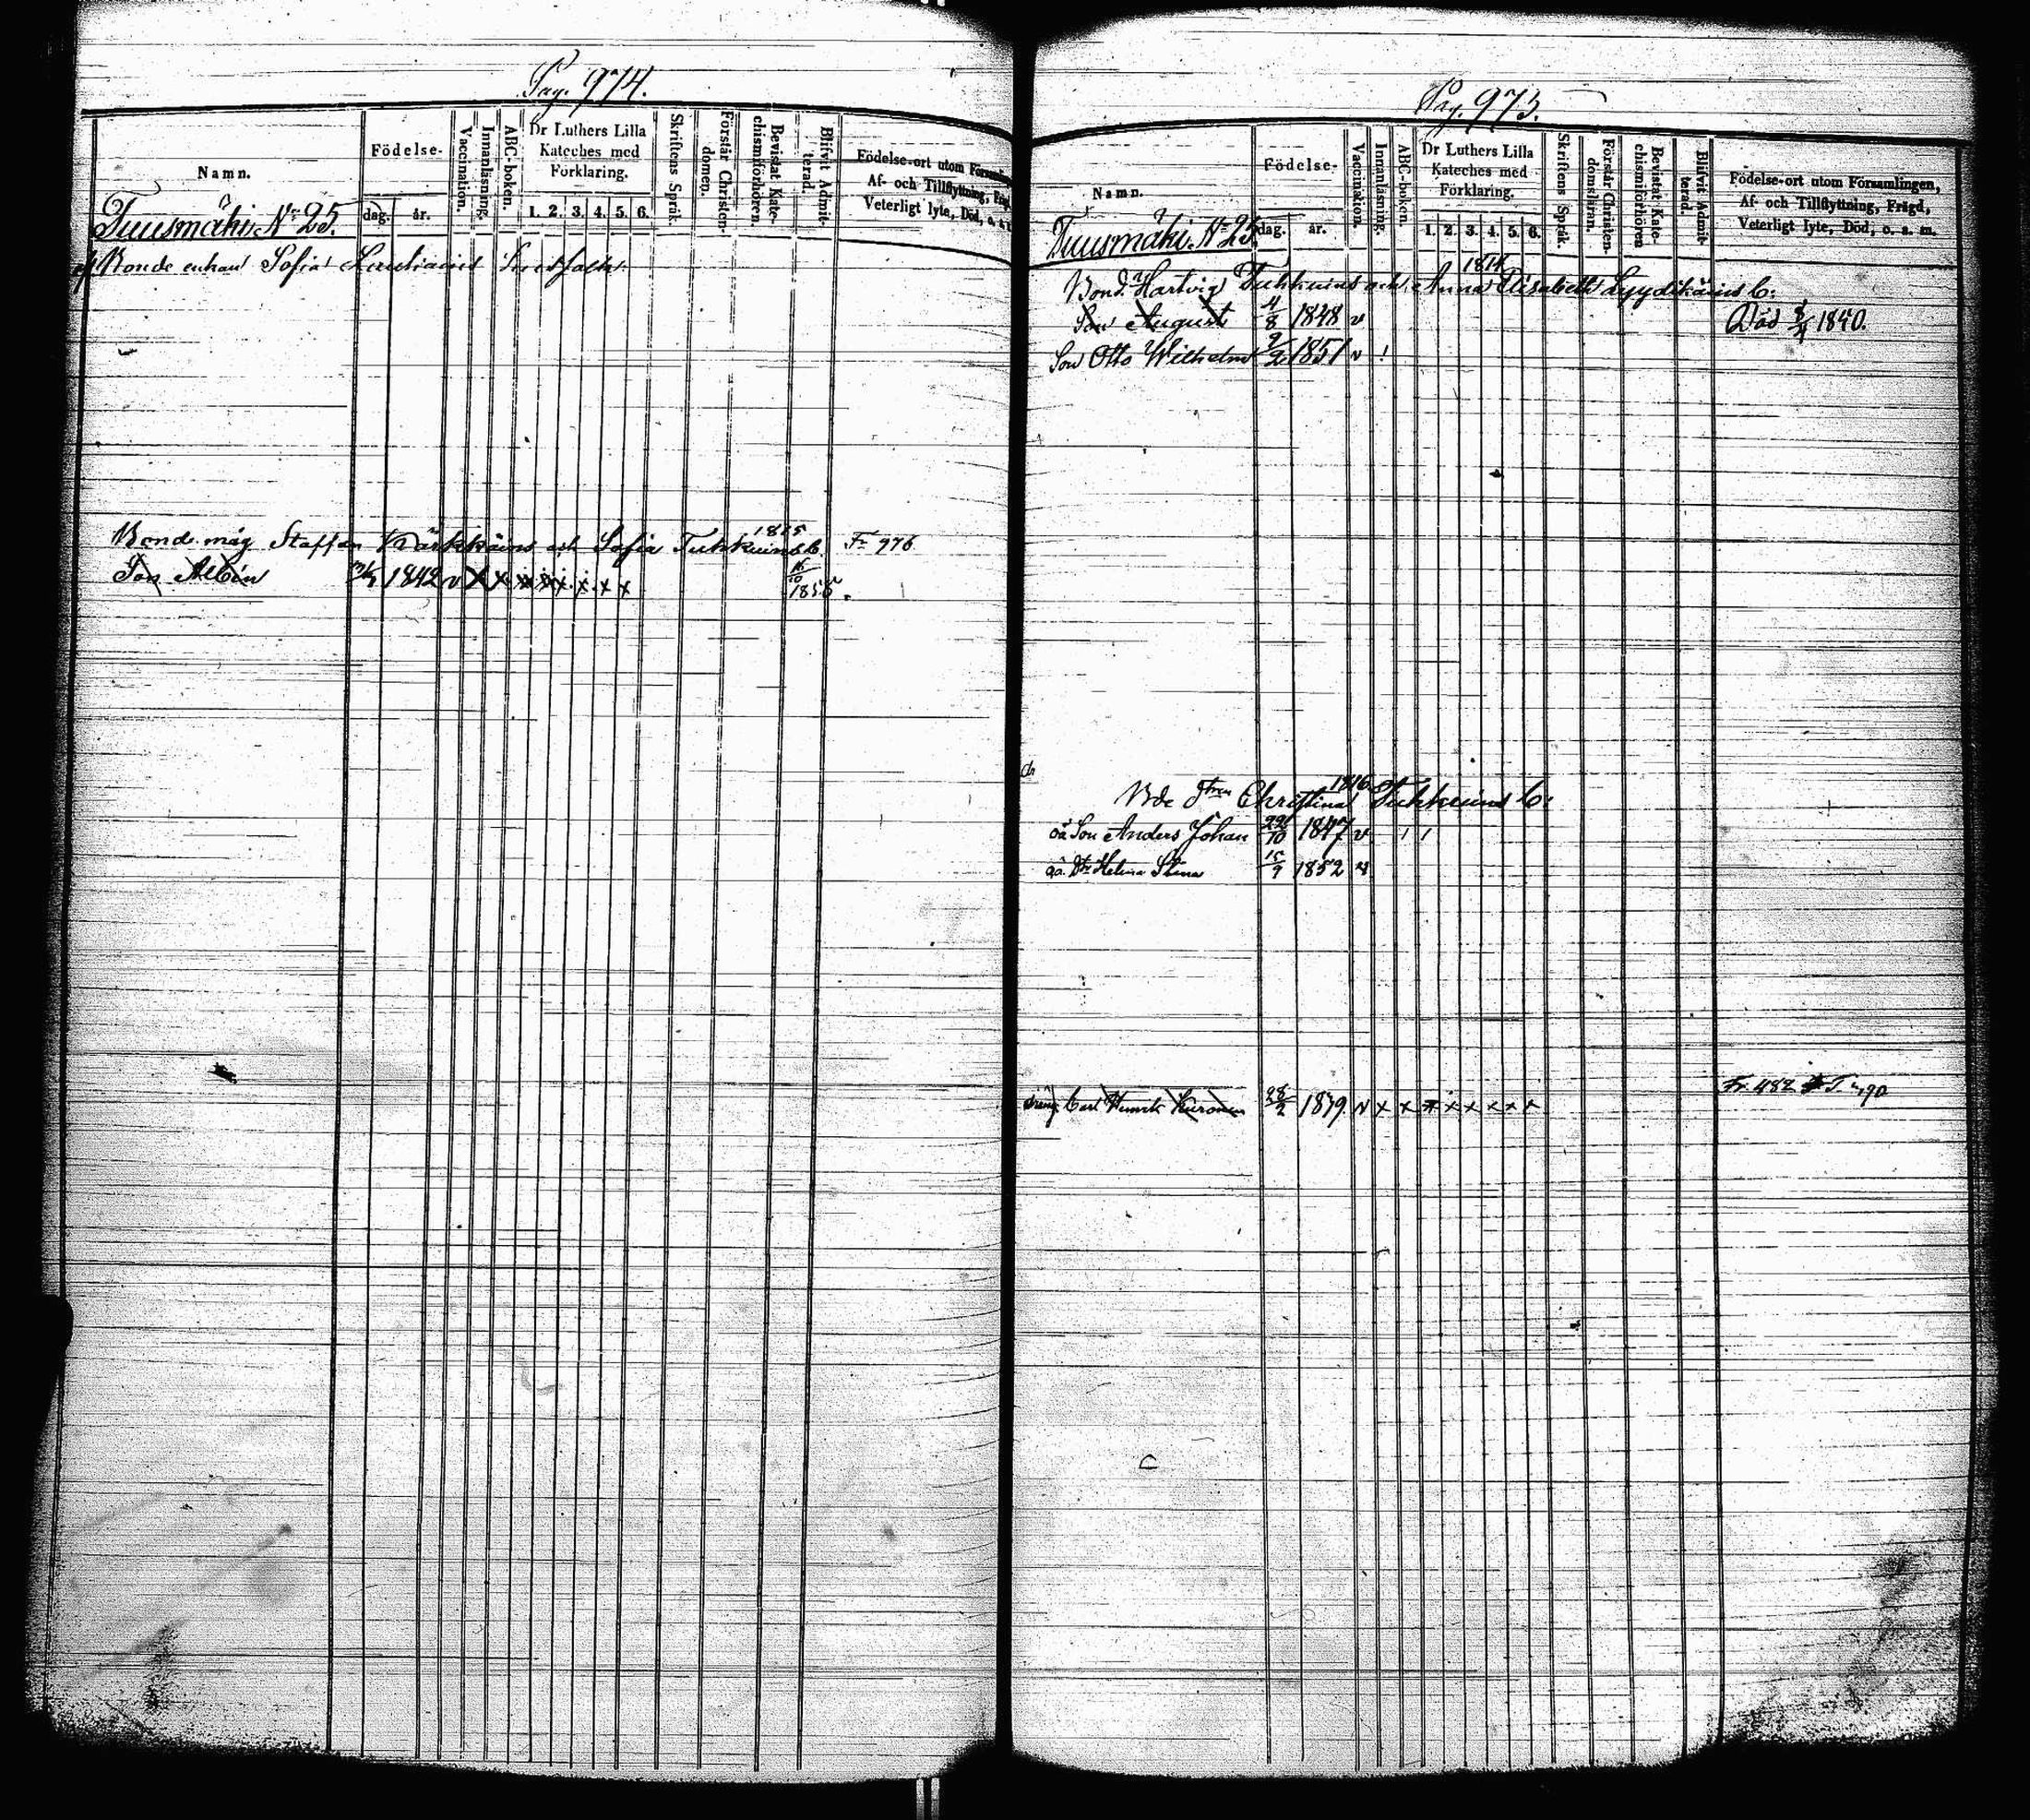 Pag. 974.
Namn.
Födelse-
dag. år.
Vaccination.
Innanläsning.
ABC-boken.
Dr Luthers Lilla
Kateches med
Förklaring.
1. 2. 3. 4. 5. 6.
Skriftens Språk.
Förstår Christen-
domen.
Bevistat Kate-
chismiförhören.
Blifvit Admit-
terad.
Födelse-ort utom Församl
Af- och Tillflyttning,
Veterligt lyte, Död, o.
Tuusmäki N:o 25.
Bonde enkan Sofia
Bond. måg Staffan Kärkkäins och Sofia Tuhkuins b. 1815 Fr 976
Son Albin 1842 v x x x x x x x x 15/10 1856.
Pag. 973.
Namn.
Födelse-
dag. år.
Vaccination.
Innanläsning.
ABC-boken.
Dr Luthers Lilla
Kateches med
Förklaring.
1. 2. 3. 4. 5. 6.
Skriftens Språk.
Förstår Christen-
domsläran.
Bevistat Kate-
chismiförhören
Blifvit Admit-
terad.
Födelse-ort utom Församlingen,
Af- och Tillflyttning, Frägd,
Veterligt lyte, Död, o. s. m.
Tuusmäki N:o 25.
1814
Bond. Hartvig Tuhkuins och Anna Elisabeth Lyydikäins b:
Son August 4/8 1848 v Död 1840.
Son Otto Wilhelm 2/2 1851 v
1816
Bde Christina Tuhkuins b:
oä Son Anders Johan 22/10 1847 v
oä. Dtr Helena Stina 15/9 1852 v
Fr. 482
dräng Carl Henrik Kuronen 28/2 1839 v x x x x x x x x